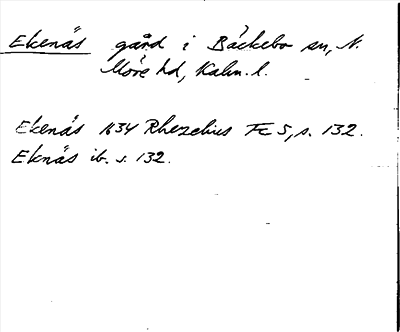 Ekenäs gård i Bäckebo sn, N.
Möre hd, Kalm. l.
Ekenäs 1634 Rhezelius Fc 5, s. 132.
Eknäs ib. s. 132.